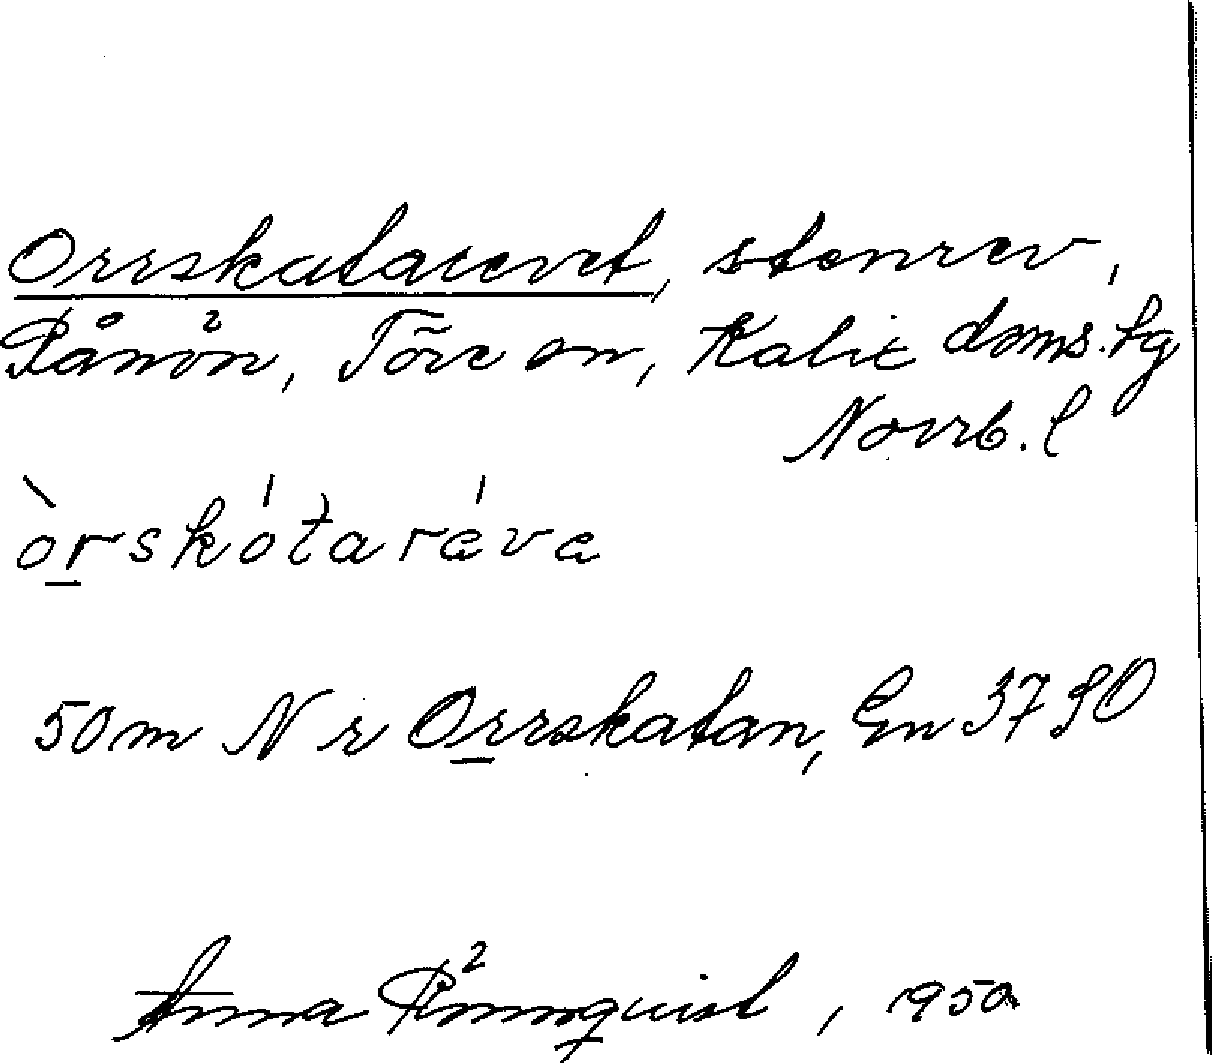 Orrskatarevet, stenrev,
Rånön, Töre sn, Kalix doms.lg
Norrb. l
òrskátaráva
50 m N r Orrskatan, En 37 SO
Anna Rönnquist, 1950